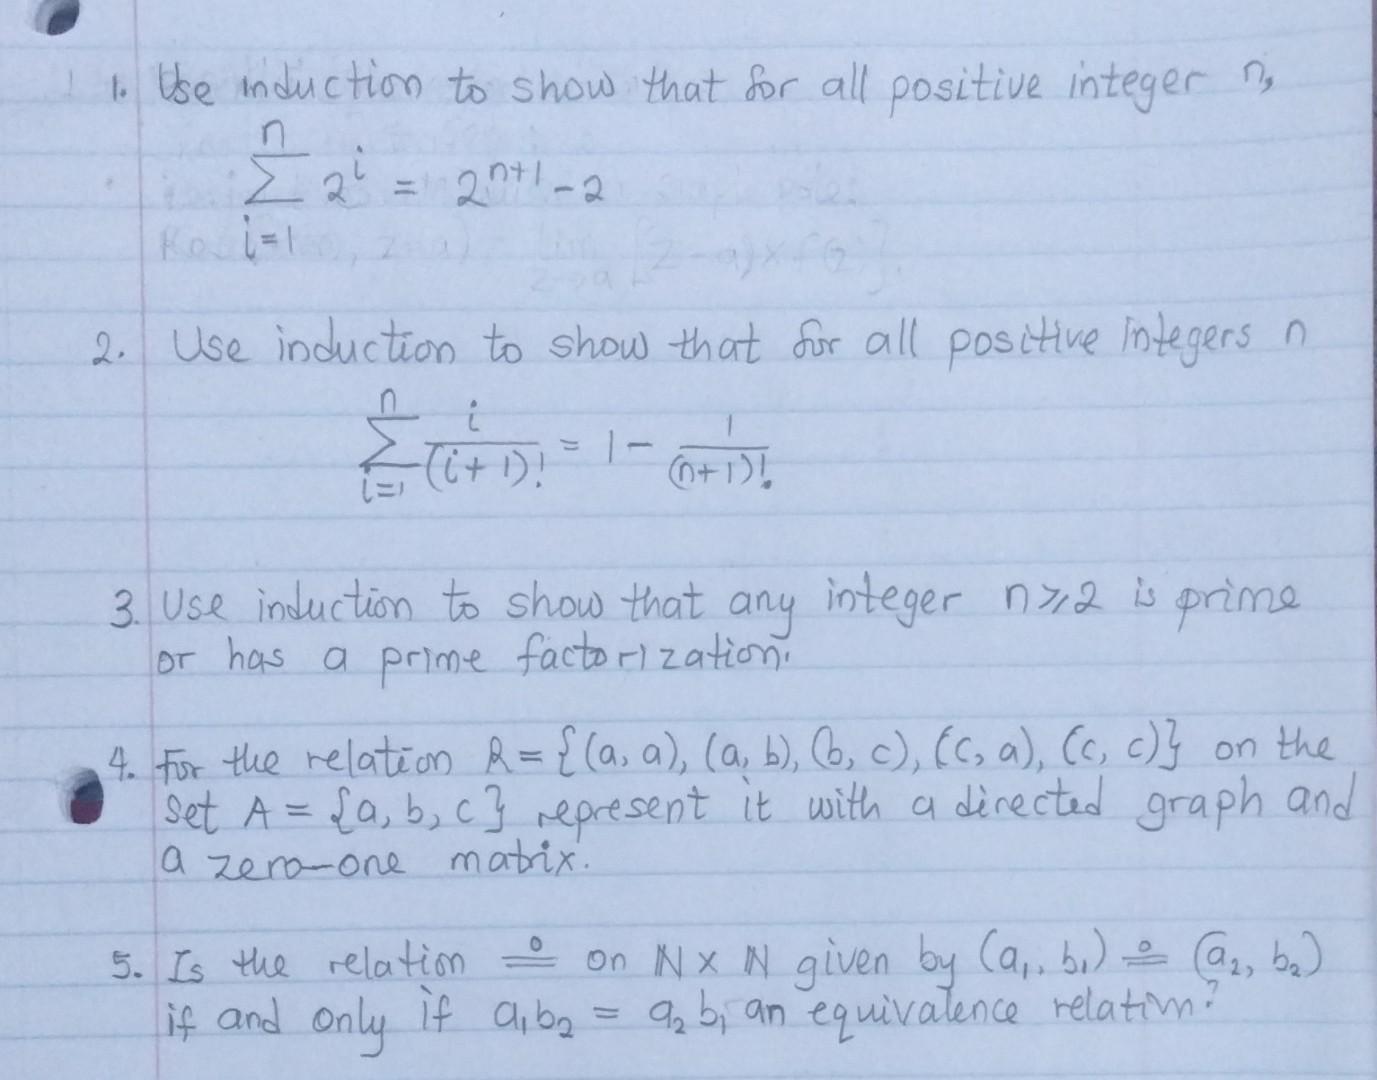 1. Use induction to show that for all positive integer n,
\sum_{i=1}^{n} 2^i = 2^{n+1} - 2
2. Use induction to show that for all positive integers n
\sum_{i=1}^{n} \frac{i}{(i+1)!} = 1 - \frac{1}{(n+1)!}.
3. Use induction to show that any integer n ⩾ 2 is prime
or has a prime factorization.
4. For the relation R = {(a, a), (a, b), (b, c), (c, a), (c, c)} on the
set A = {a, b, c} represent it with a directed graph and
a zero-one matrix.
5. Is the relation ≗ on ℕ × ℕ given by (a₁, b₁) ≗ (a₂, b₂)
if and only if a₁b₂ = a₂b₁ an equivalence relation?